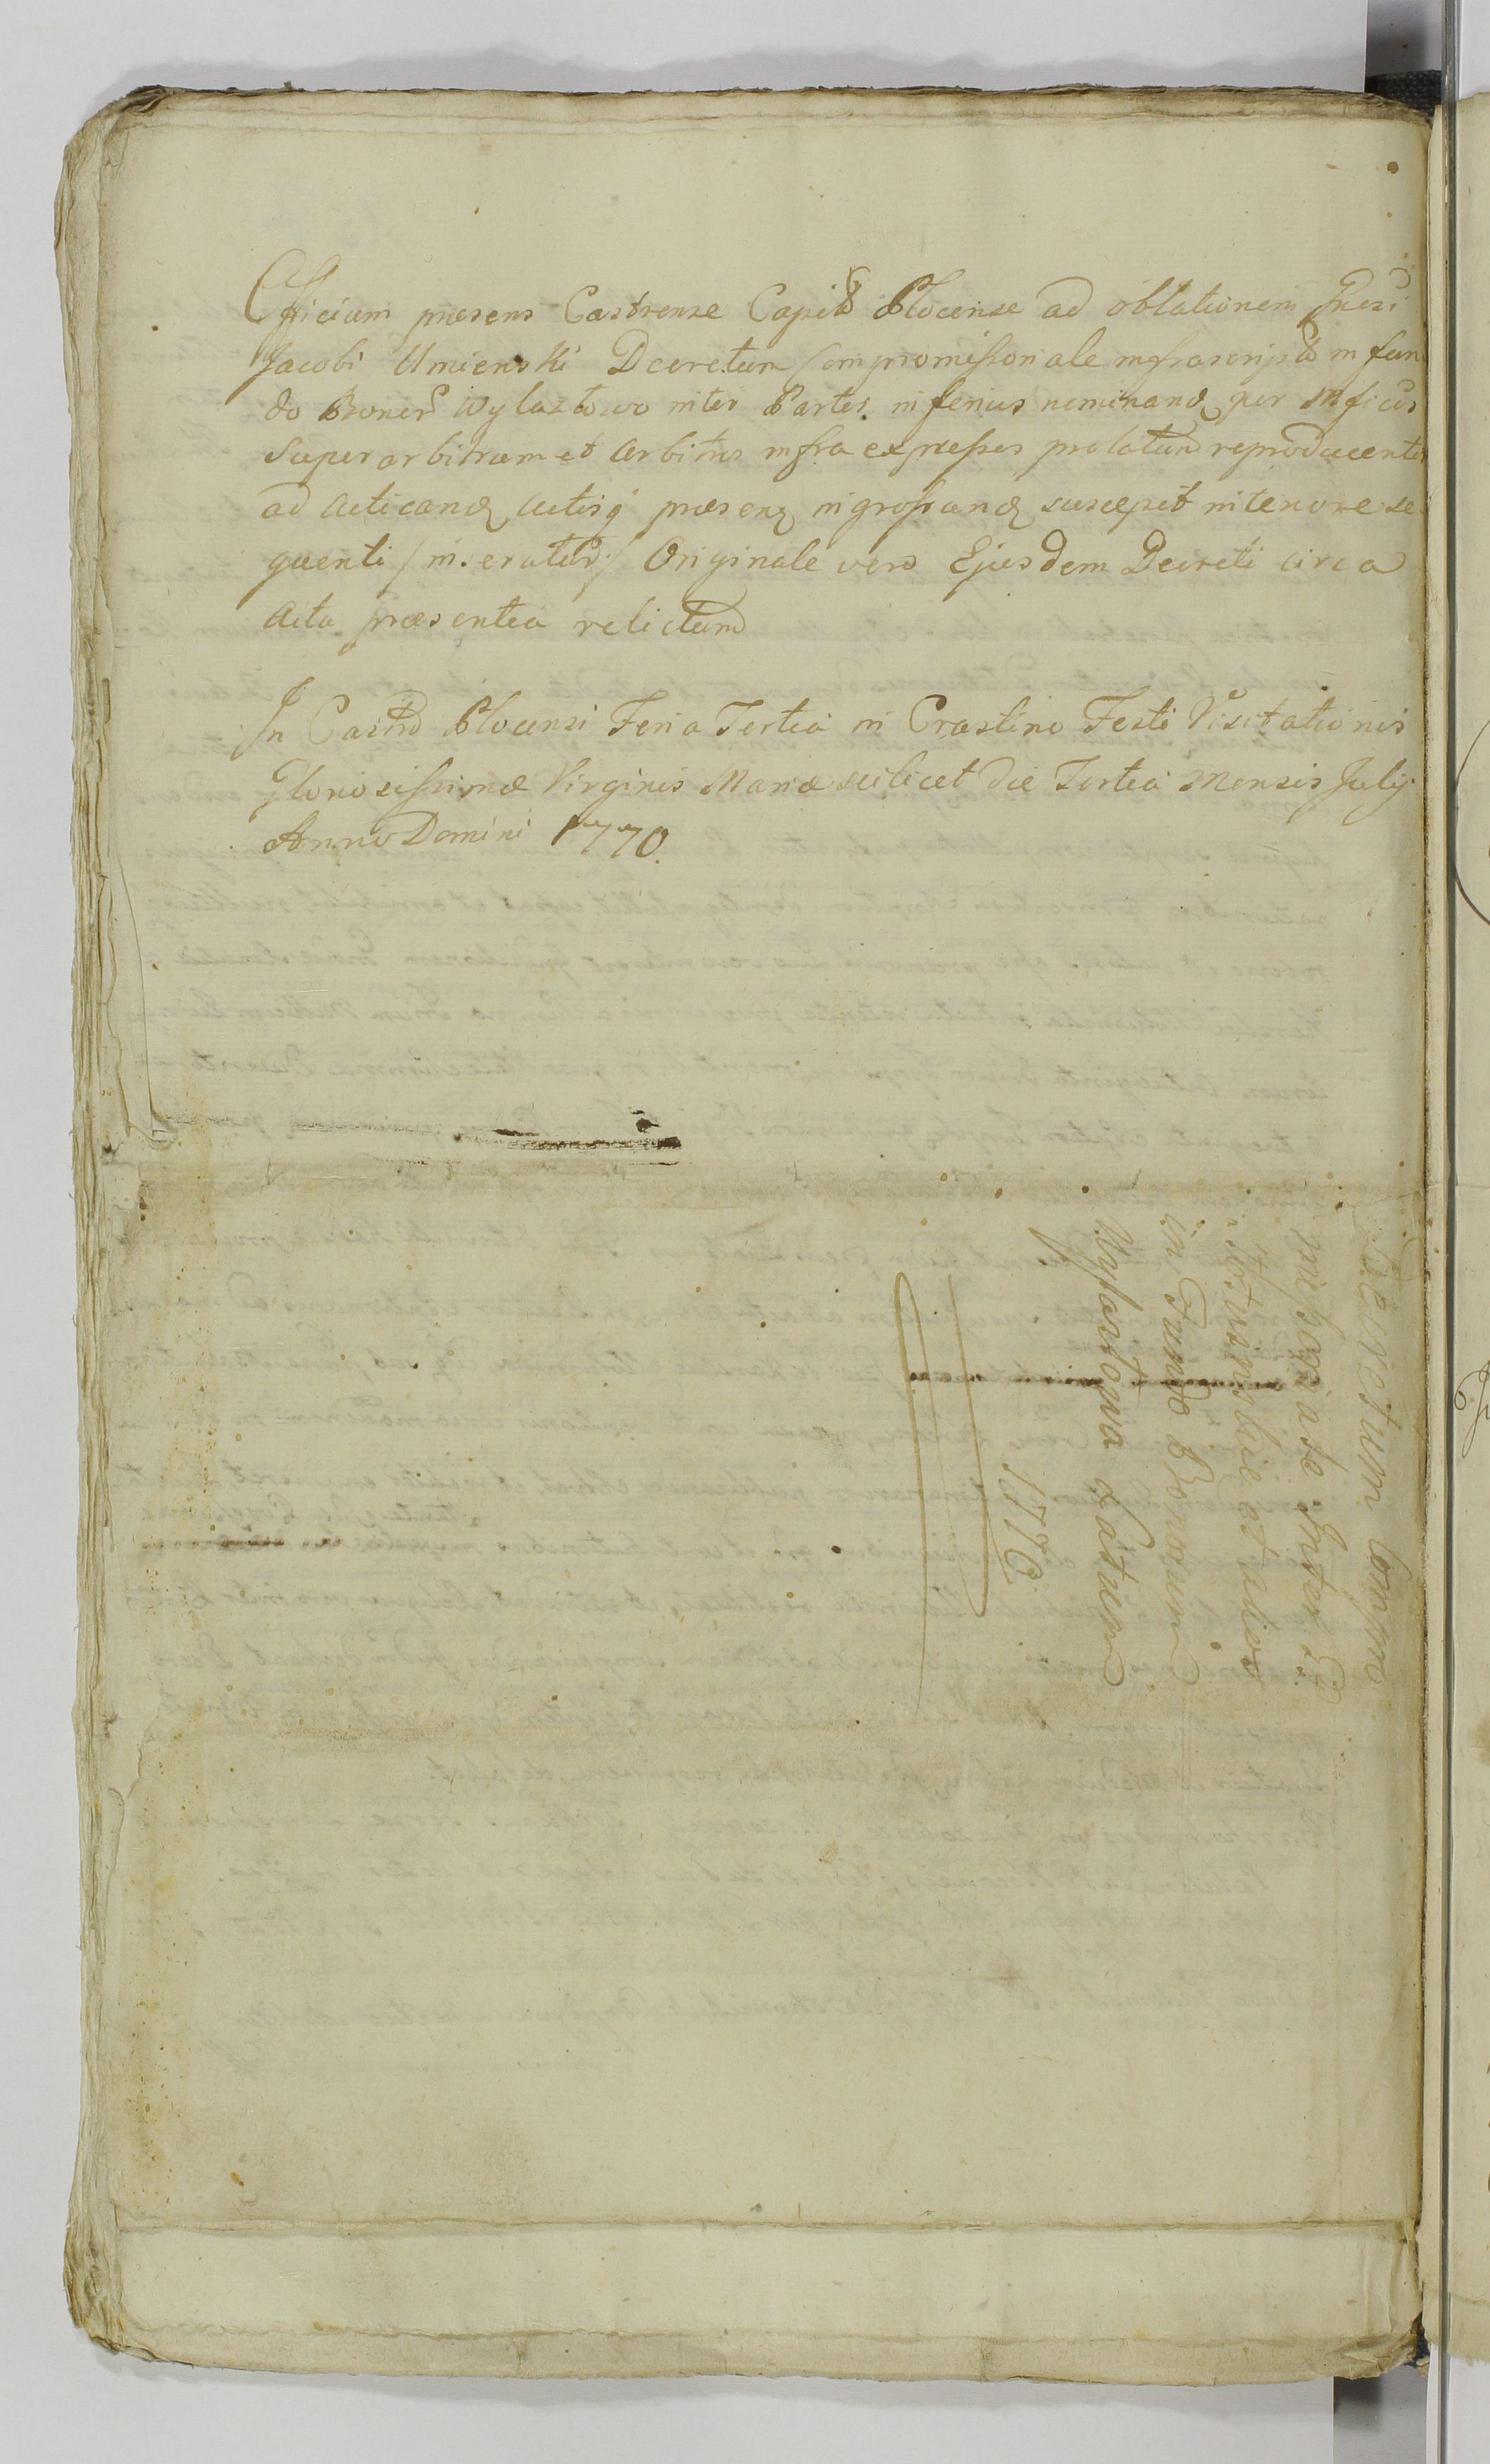 Officium præsens Castrense Capitle Plocense ad oblationem Gnesi
Jacobi Umienski Dcretum Compromissoriale infrascriptũ in fun
do Bonorũ Wylaztowo inter Partes inferius nominanđ per Mficũ
Superarbitrum et Arbitros infra expressos prolatum reproducentis
ad Acticanđ Actisq præsenđ ingrossanđ suscepit in tenore se
quenti /inseratur/ Originale vero Ejusdem Decreti circa
Acta præsentia relictum
In Castro Plocensi Feria Tertia in Crastino Festi Visitationis
Gloriosissimæ Virginis Mariæ scilicet die Tertia Mensis Julij
Anno Domini 1770.
Decretum Compro
Inter
et alios
in Fundo Bonorum
Wylaztowa Latum
1770